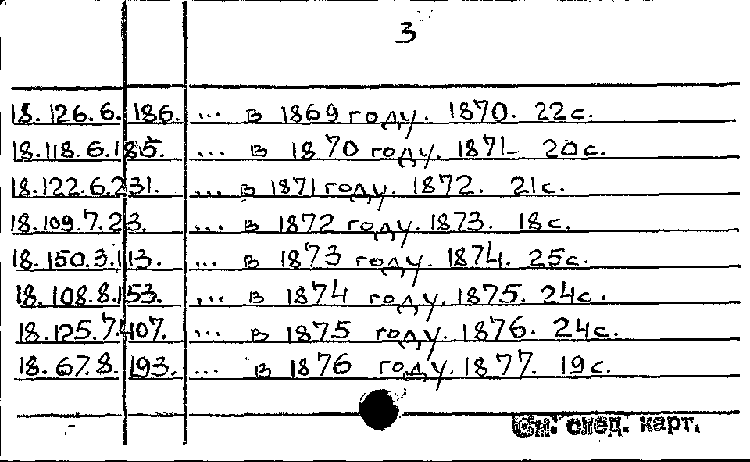 3
18.126.6.186. ... в 1869 году. 1870. 22с.
18.118.6.185. ... в 1870 году. 1871- 20с.
18.122.6.231. ... в 1871 году. 1872. 21с.
18.109.7.23. ... в 1872 году. 1873. 18с.
18.150.3.113. ... в 1873 году. 1874. 25с.
18.108.8.153. ... в 1874 году. 1875. 24с.
18.125.7.407. ... в 1875 году. 1876. 24с.
18.67.8.193. ... в 1876 году. 1877. 19с.
См. след. карт.